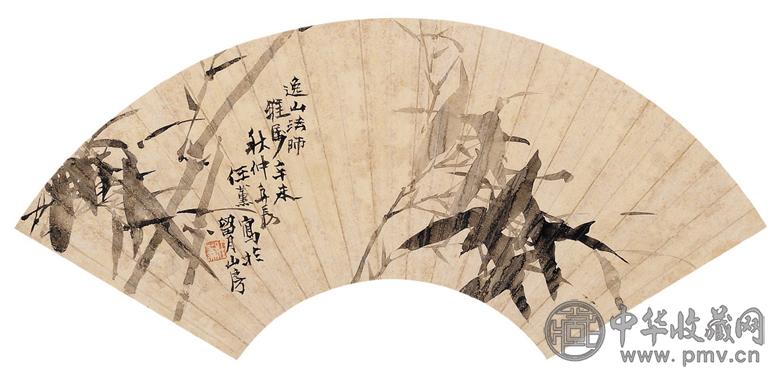 逸山法师
雅属辛未
秋仲
任薰写於
留月山房
中华收藏网
www.pmv.cn